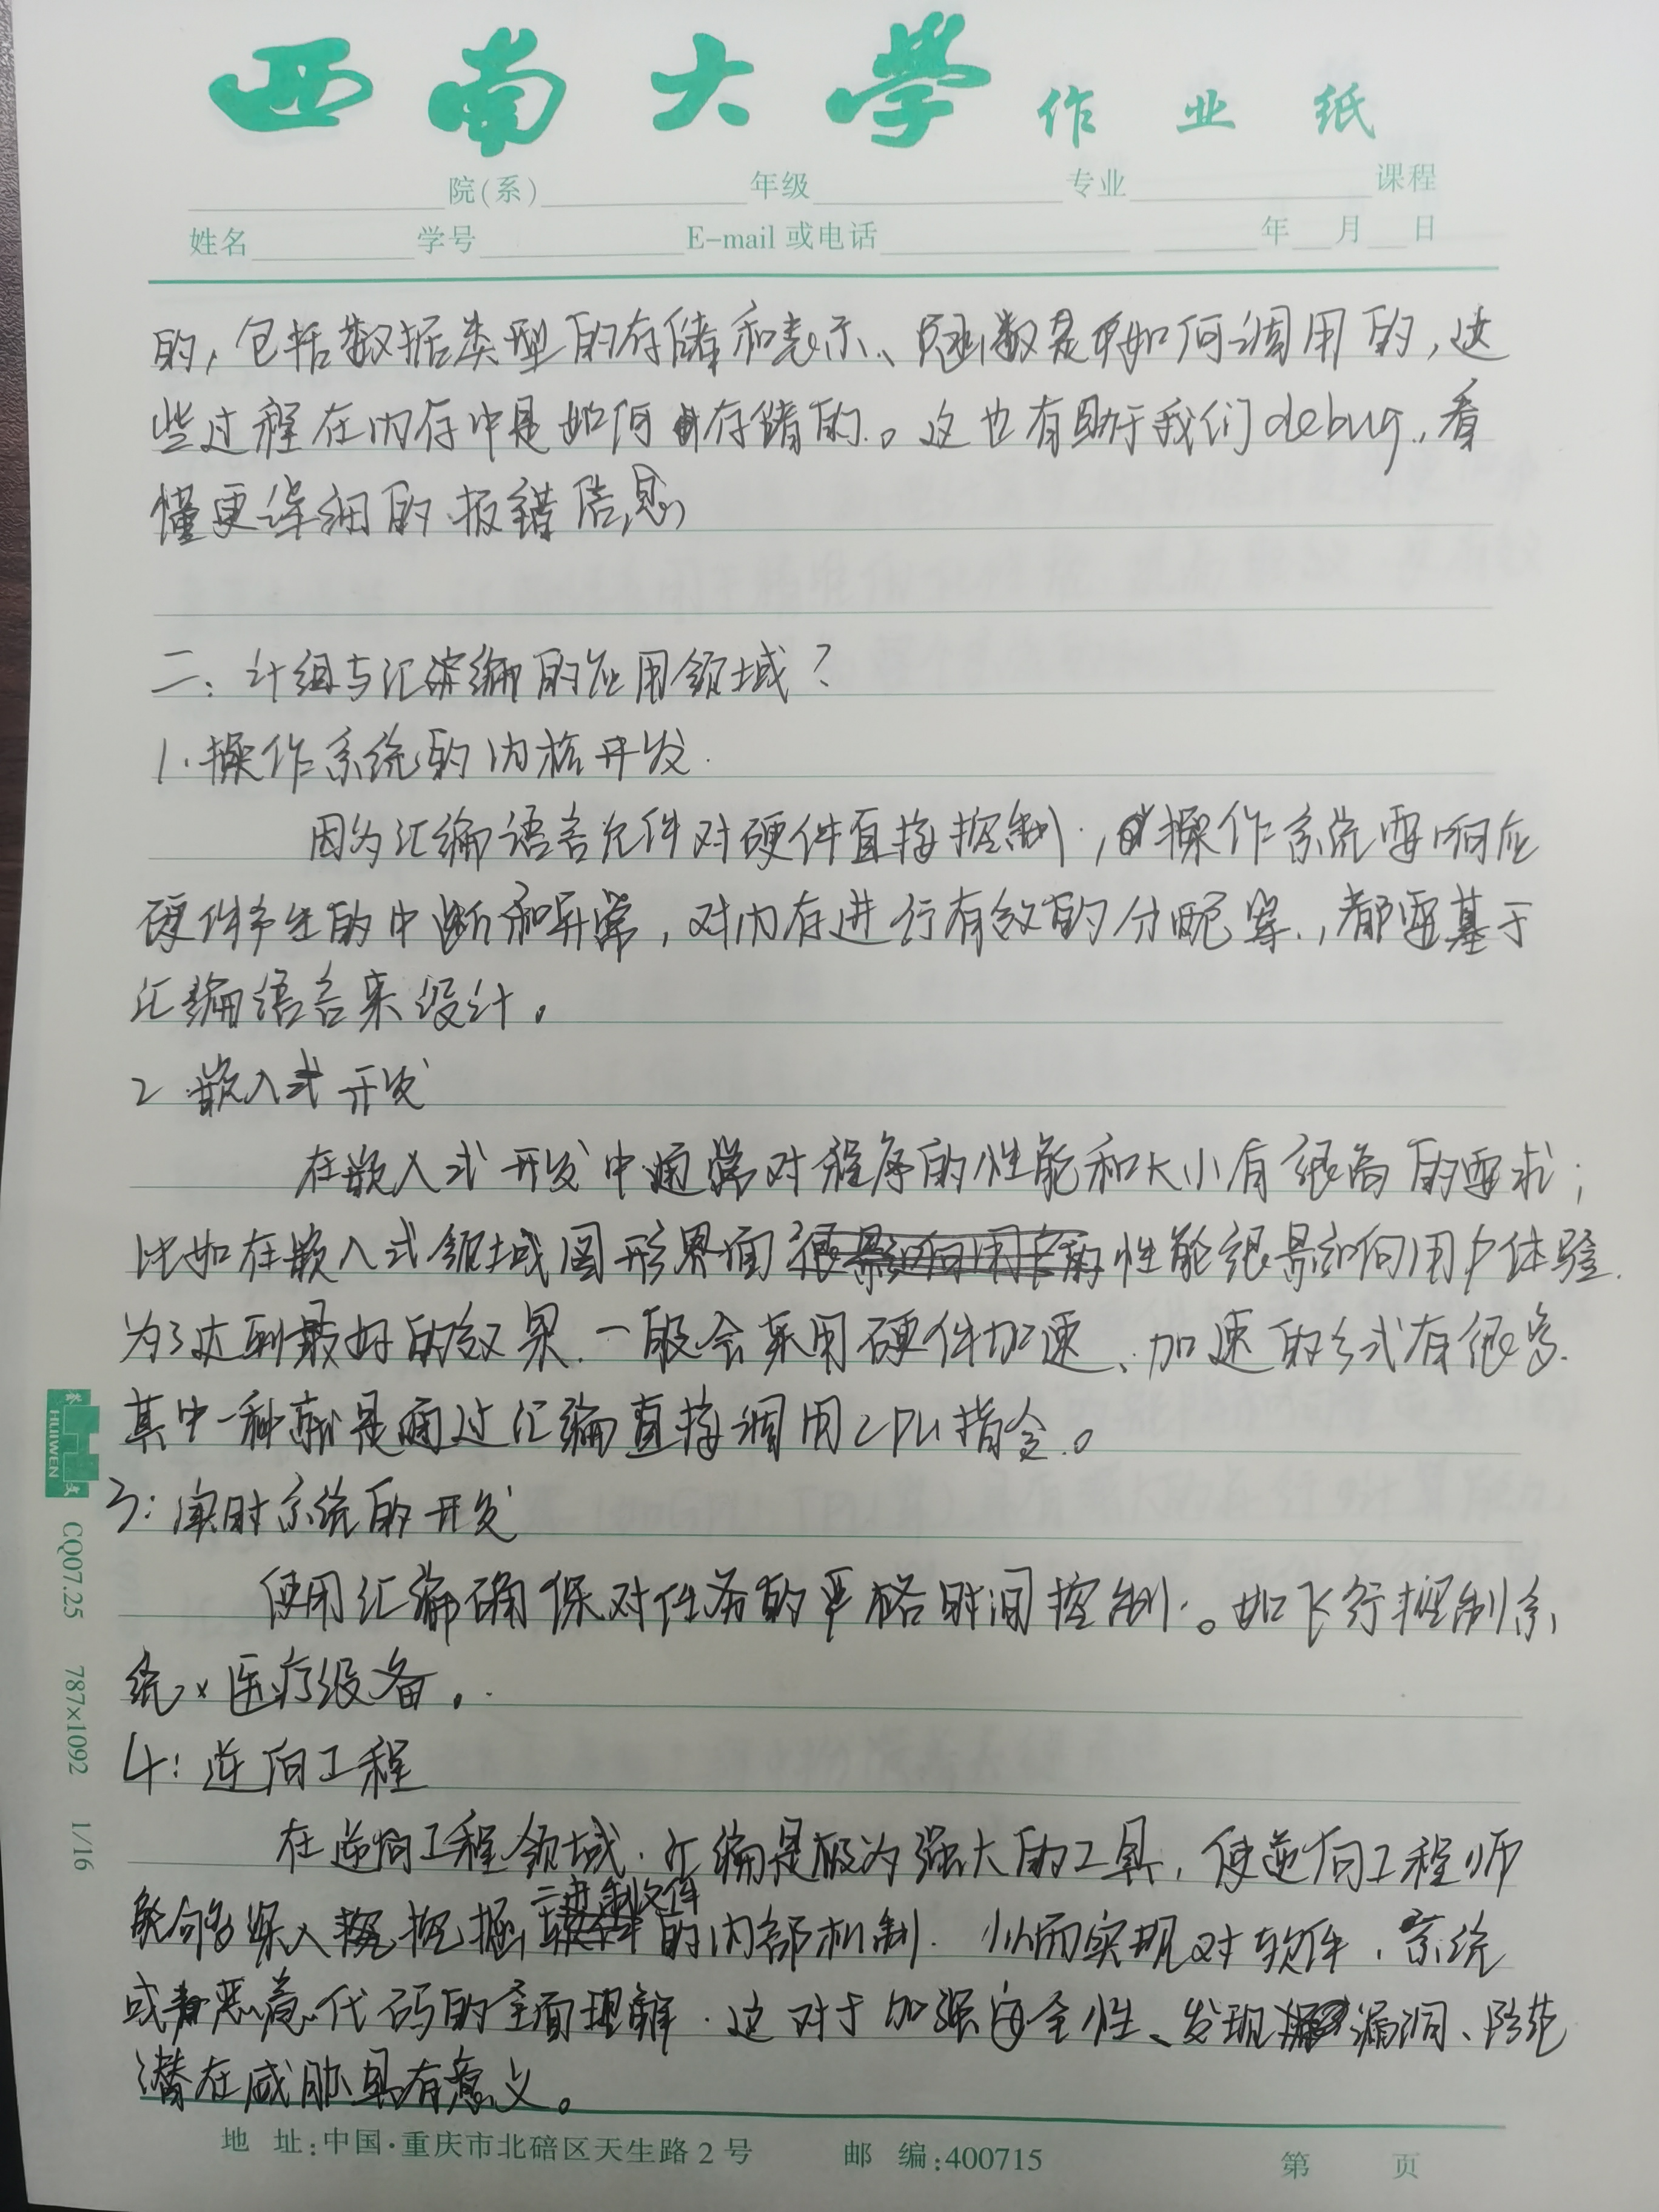 西南大学作业纸
院(系) 年级 专业 课程
姓名 学号 E-mail 或电话 年 月 日
的，包括数据类型的存储和表示、函数是如何调用的，这
些过程在内存中是如何存储的。这也有助于我们debug，看
懂更详细的报错信息
二：计组与汇编的应用领域？
1.操作系统的内核开发.
因为汇编语言允许对硬件直接控制，操作系统要响应
硬件产生的中断和异常，对内存进行有效的分配等，都要基于
汇编语言来设计。
2 嵌入式开发
在嵌入式开发中通常对程序的性能和大小有很高的要求；
比如在嵌入式领域图形界面性能很影响用户体验.
为了达到最好的效果.一般会采用硬件加速、加速的方式有很多.
其中一种就是通过汇编直接调用CPU指令。
3：实时系统的开发
使用汇编确保对任务的严格时间控制。如飞行控制系
统、医疗设备。
4：逆向工程
在逆向工程领域.汇编是极为强大的工具，使逆向工程师
能够深入挖掘二进制文件的内部机制.从而实现对软件、系统
或恶意代码的全面理解.这对于加强安全性、发现漏洞、防范
潜在威胁具有意义。
地 址:中国·重庆市北碚区天生路2号 邮 编:400715 第 页
HUIWEN
CQ07.25 787×1092 1/16